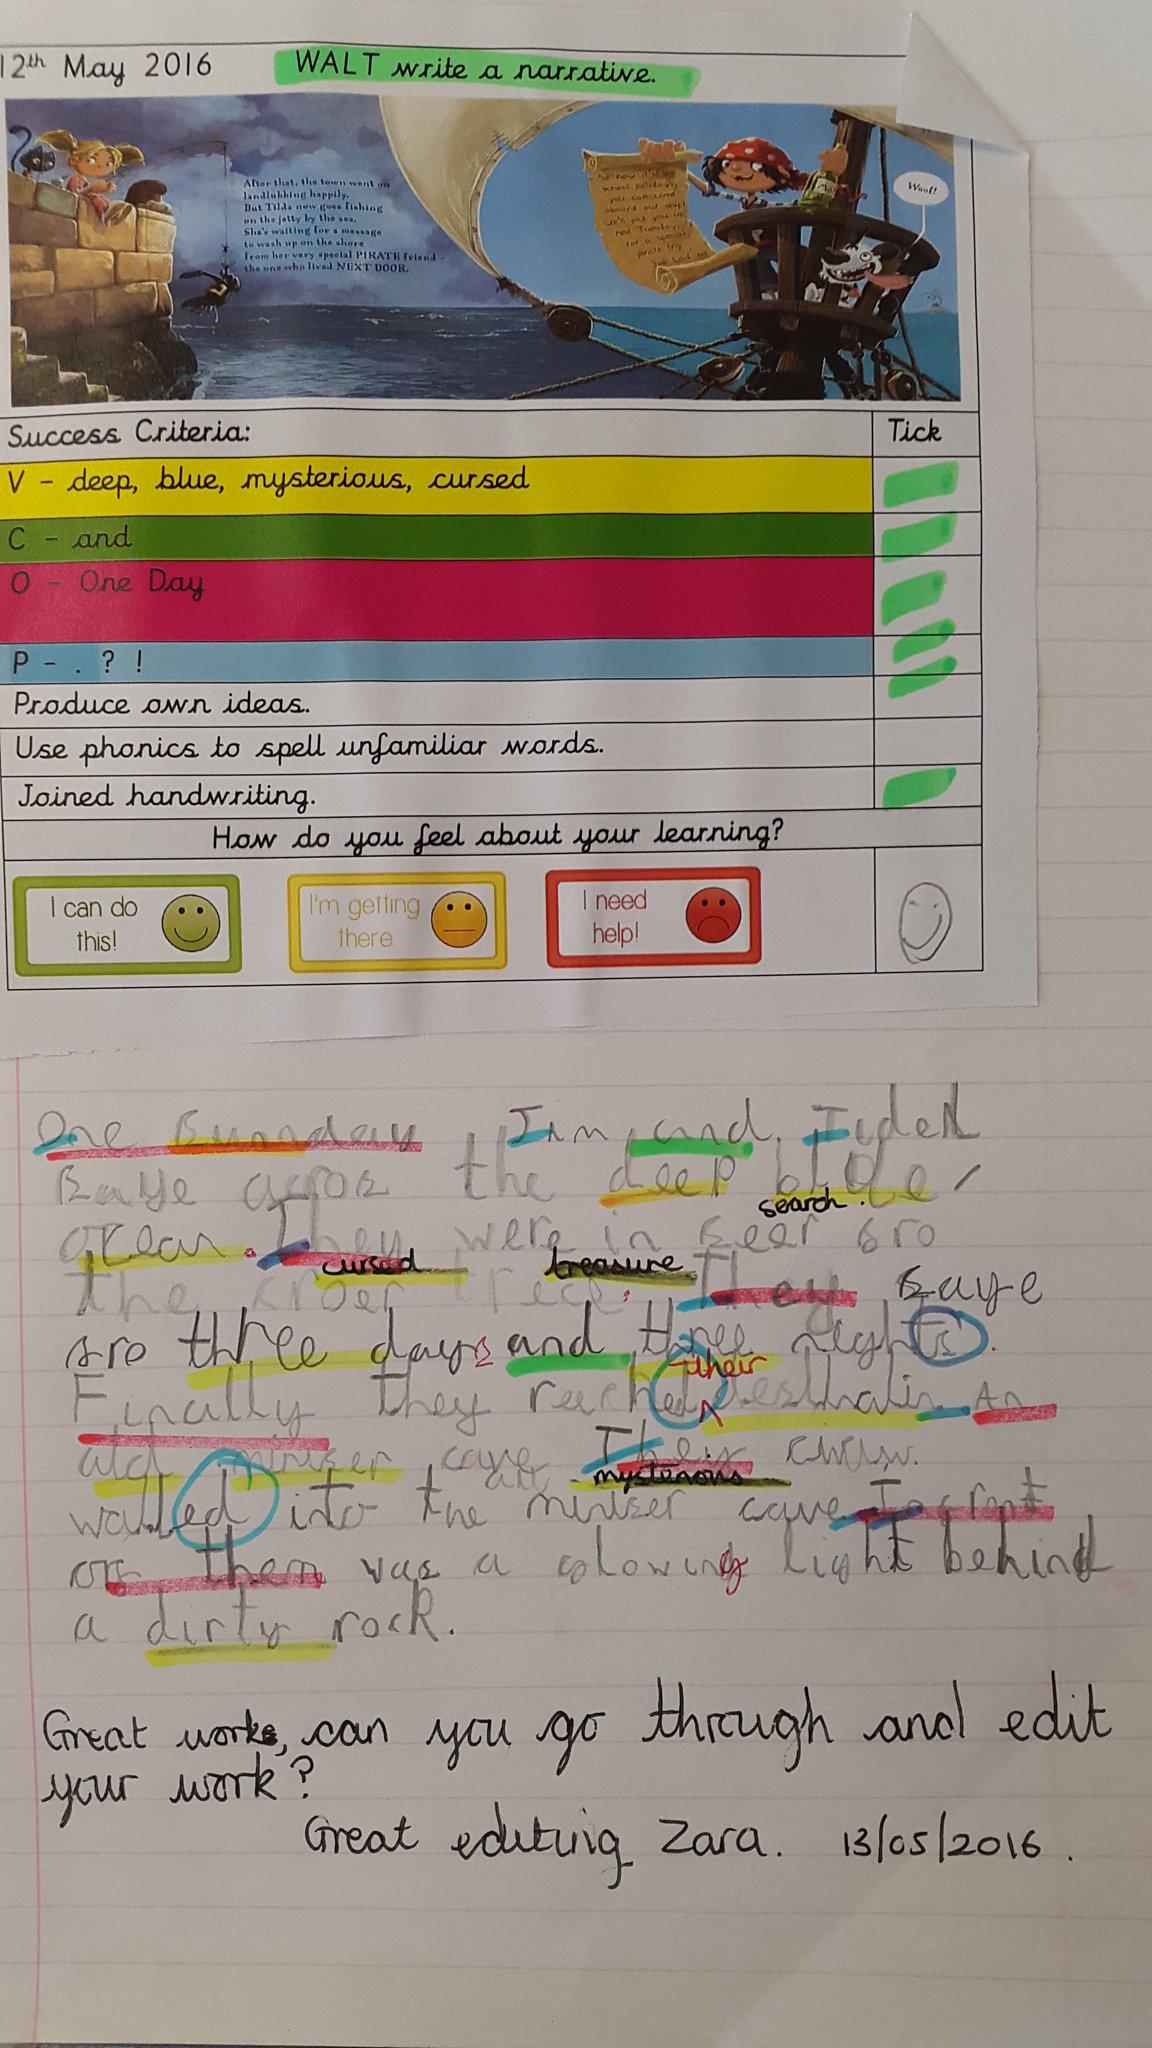 12th May 2016 WALT write a narrative.
After that, the town went on
landlubbing happily.
But Tilda now goes fishing
on the jetty by the sea.
She's waiting for a message
to wash up on the shore
from her very special PIRATE friend -
the one who lived NEXT DOOR.
So now it's the
school holidays,
you can come
aboard our ship!
We'll pick you up
next Tuesday
for a special
pirate trip.
Jim Lad
Woof!
Success Criteria: Tick
V - deep, blue, mysterious, cursed
C - and
O - One Day
P - . ? !
Produce own ideas.
Use phonics to spell unfamiliar words.
Joined handwriting.
How do you feel about your learning?
I can do
this!
I'm getting
there
I need
help!
One Sunnday Jim and
saye acros the deep
search.
They were in seer sro
cursed treasure
the They saye
sro three days and three nights.
their
Finally they reached An
old miniser cave They
all mysterious
walled into the miniser cave In
them was a glowing light behind
a dirty rock.
Great works, can you go through and edit
your work?
Great editing Zara. 13/05/2016.